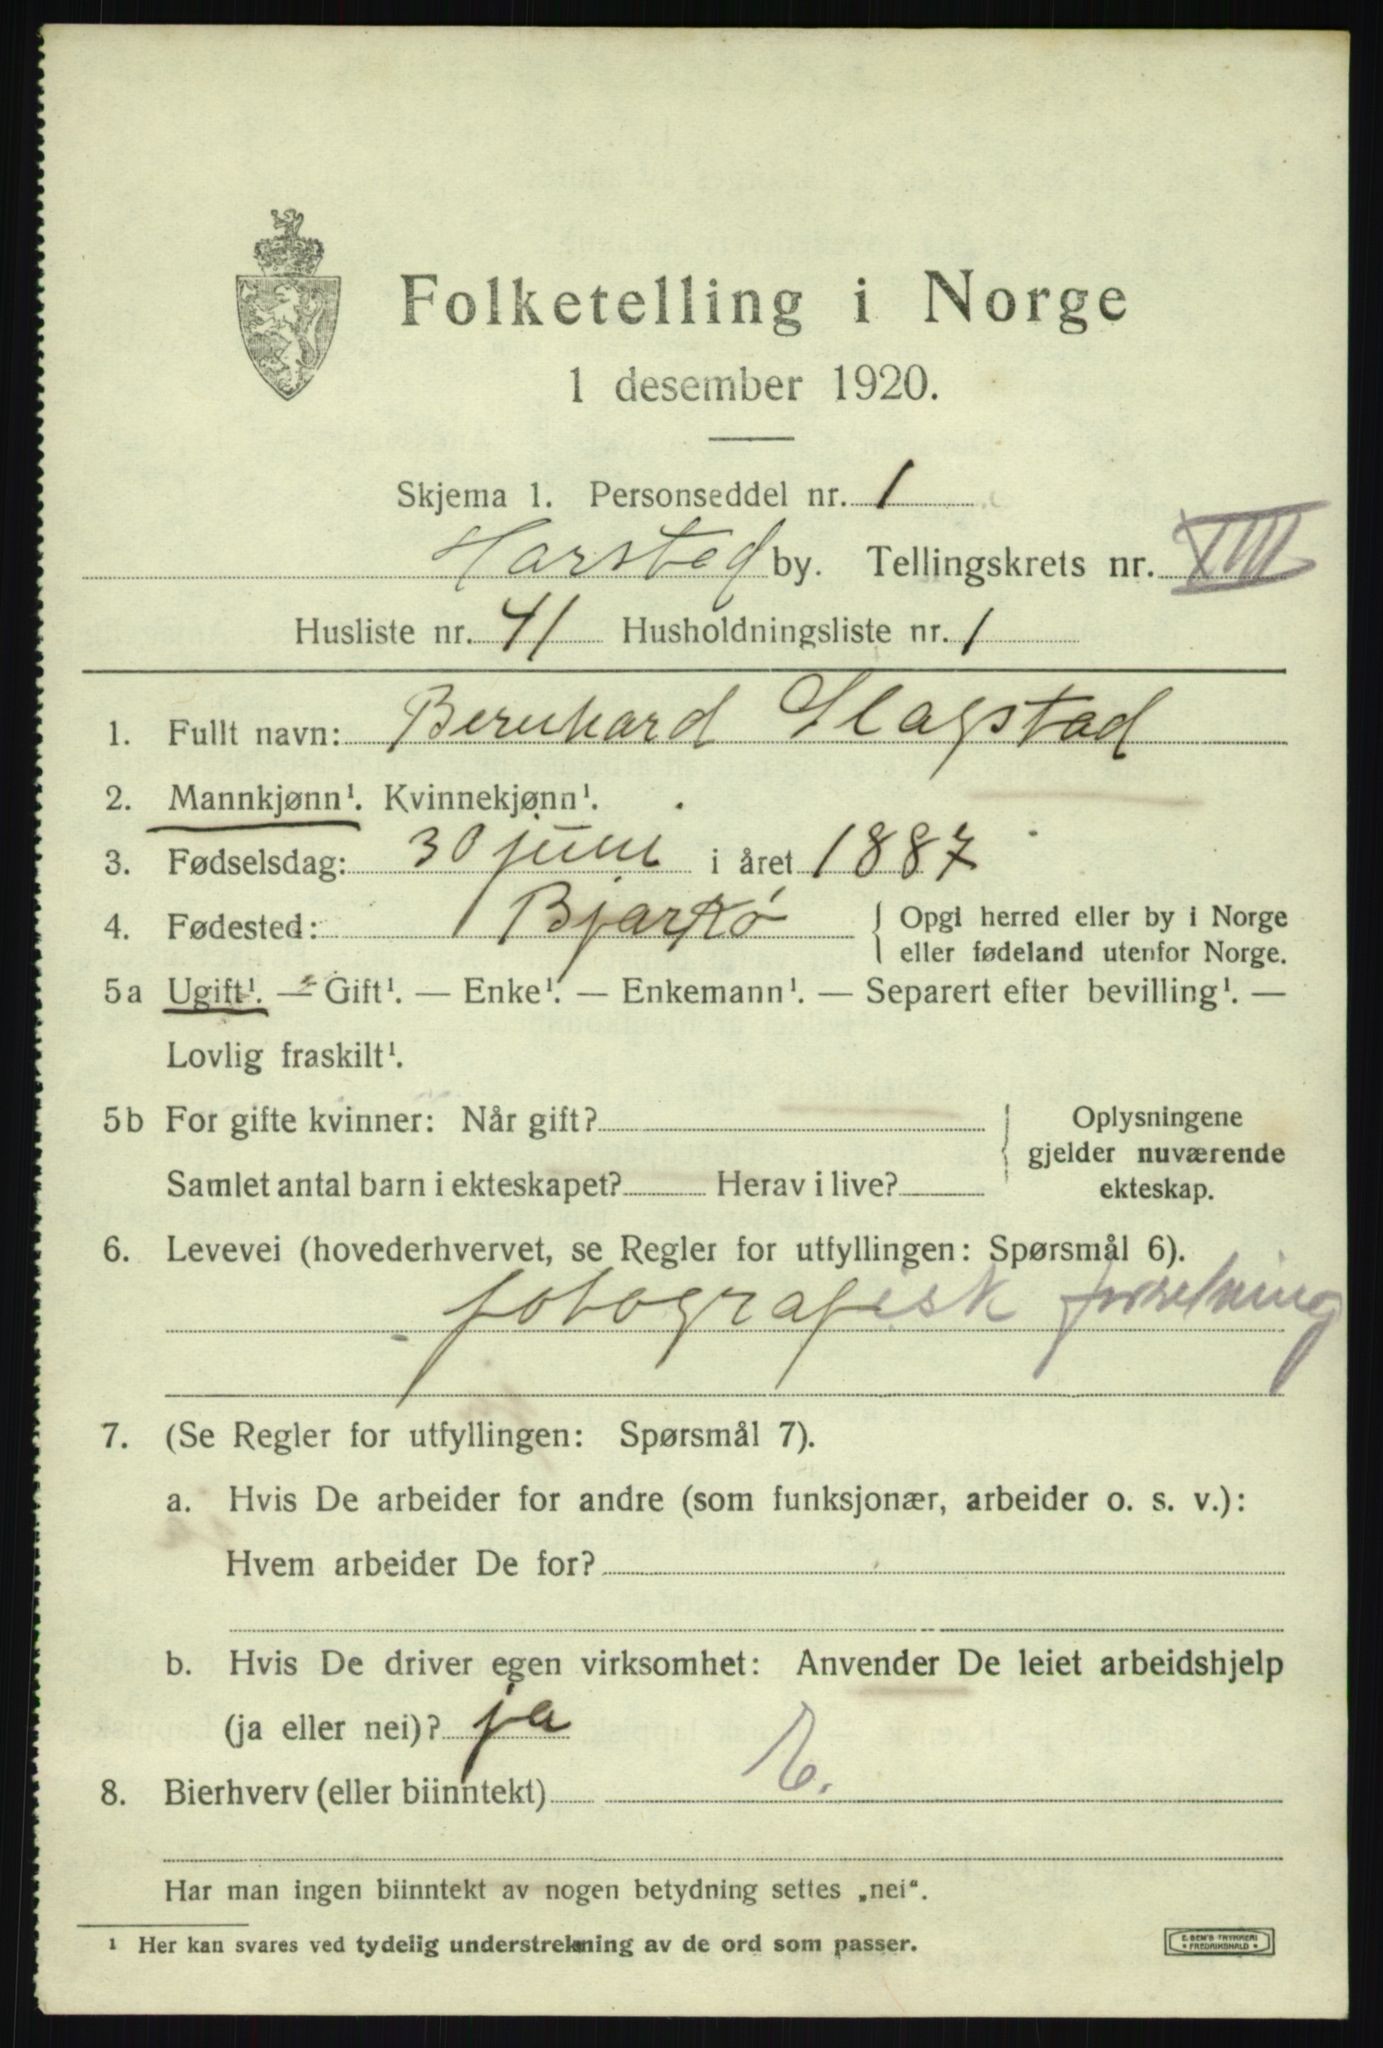 Folketelling i Norge
1 desember 1920.
Skjema 1. Personseddel nr. 1
Harstad by. Tellingskrets nr. XIII
Husliste nr. 41 Husholdningsliste nr. 1
1. Fullt navn: Bernhard Slagstad
2. Mannkjønn¹. Kvinnekjønn¹.
3. Fødselsdag: 30 juni i året 1887
4. Fødested: Bjarkø { Opgi herred eller by i Norge
eller fødeland utenfor Norge.
5a Ugift¹. — Gift¹. — Enke¹. — Enkemann¹. — Separert efter bevilling¹. —
Lovlig fraskilt¹.
5b For gifte kvinner: Når gift?
Samlet antal barn i ekteskapet? Herav i live?
Oplysningene
gjelder nuværende
ekteskap.
6. Levevei (hovederhvervet, se Regler for utfyllingen: Spørsmål 6).
fotografisk forretning
7. (Se Regler for utfyllingen: Spørsmål 7).
a. Hvis De arbeider for andre (som funksjonær, arbeider o. s. v.):
Hvem arbeider De for?
b. Hvis De driver egen virksomhet: Anvender De leiet arbeidshjelp
(ja eller nei)? ja
8. Bierhverv (eller biinntekt)
Har man ingen biinntekt av nogen betydning settes „nei“.
¹ Her kan svares ved tydelig understrekning av de ord som passer.
E. SEM'S TRYKKERI
FREDRIKSHALD